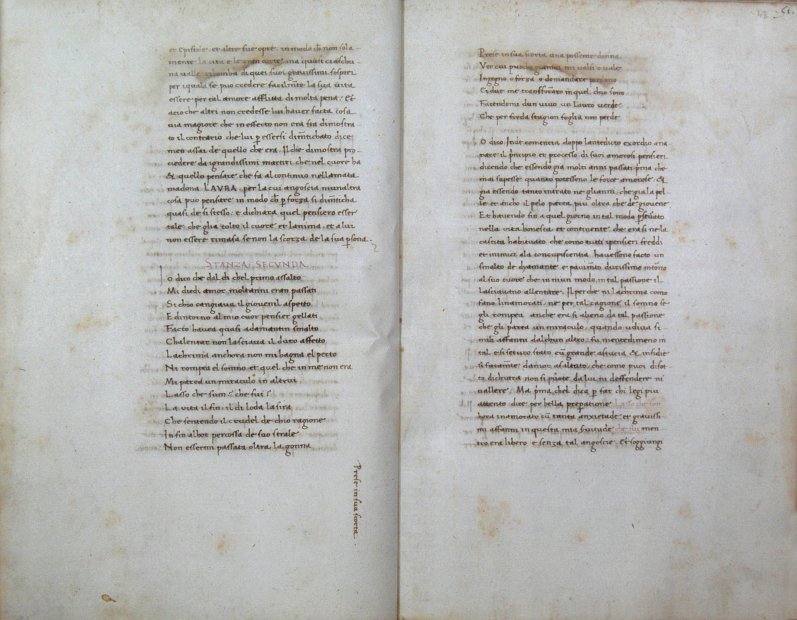 et Epistole et altre sue opre in modo ch non sola
mente la vita e la gran corte ma quasi ciaschu
na valle ribomba di quei suoi gravissimi sospiri
per iquali se puo credere facilmente la sua vita
essere per tal amore afflitta di molta pena. Et
acio che altri non credesse lui haver facta cosa
via magiore che in effecto non era sia dimostra
to il contrario che lui p essersi dimentichato dice
men assai de quello che era. Il che dimostra pro
cedere da grandissimi martiri che nel cuore ha
& quello pensier che fa al continuo nellamata
madona LAVRA. per la cui angoscia niunaltra
cosa puo pensare in modo ch p forza si dimeticha
quasi de si stesso: e dichiara quel pensiero esser
tale che glia tolto il cuore et lanima. et a lui
non essere rimasa se non la scorza de la sua psona.
STANZA SECVNDA
O dico che dal di chel primo assalto
Mi diedi amor moltanni eran passati
Si chio cangiava il giovenil aspetto
E dintorno al mio cuor pensier gellati
Facto havea quasi adamantin smalto
Chalentar non lasciava il duro affetto
Lachrima anchora non mi bagna el pecto
Ni rompea el somno et quel che in me non era
Mi parea un miraculo in altrui
Lasso che sum: che fui:
La vita il fin: il di loda la sira
Che sentendo il crudel de chio ragione
In fin alhor percossa de suo strale
Non essermi passata oltra la gonna
Prese in sua scorta.
61.
Prese in sua scorta una possente donna
Ver cui pucho giamai mi valse o vale
Ingegno o forza o demandare perdono
Ci due me transformaro in quel chio sono
Facendomi dun vivo un Lauro verde
Che per freda stagion foglia non perde
O dico Indi comencia doppo lantedicto exordio ana
rare il principio et processo di suoi amorosi pensieri.
dicendo che essendo gia molti anni passati prima che
mai sapesse quanto potesseno le force amorose. &
gia essendo tanto intrato ne gli anni. che gia la pel
le et ancho il pelo parea piu oltra che de giovene
Et havendo fin a quel giorno in tal modo pseverato
nella vita honesta et continente che era si ne la
castita habituato che como tutti i pensieri freddi
et inimici ala concupiscentia havesseno facto un
smalto de dyamante et pavimto durissimo intorno
al suo cuore che in niun modo in tal passione il
lasciavano allentare. Il per che ni lachrima como
fano linamorati ne per tal cagione il somno se
gli rompea anche era si alieno da tal passione
che gli parea un miraculo quando udiva si
mili affanni dalchun altro. fu mentedimeno in
tal esistente stato cu grande astucia & insidie
si faramte da mor assaltato. che como puoi disot
to dichiara non si puote da lui ni deffendere ni
vallere. Ma prima chel dica p far chi legi piu
attento dice per bella prepatione Lasso che son
hora inamorato cu tanta anxietade et gravissi
mi affanni in questa mia servitude che fui men
tro era libero e senza tal angoscie. Et soggiungi